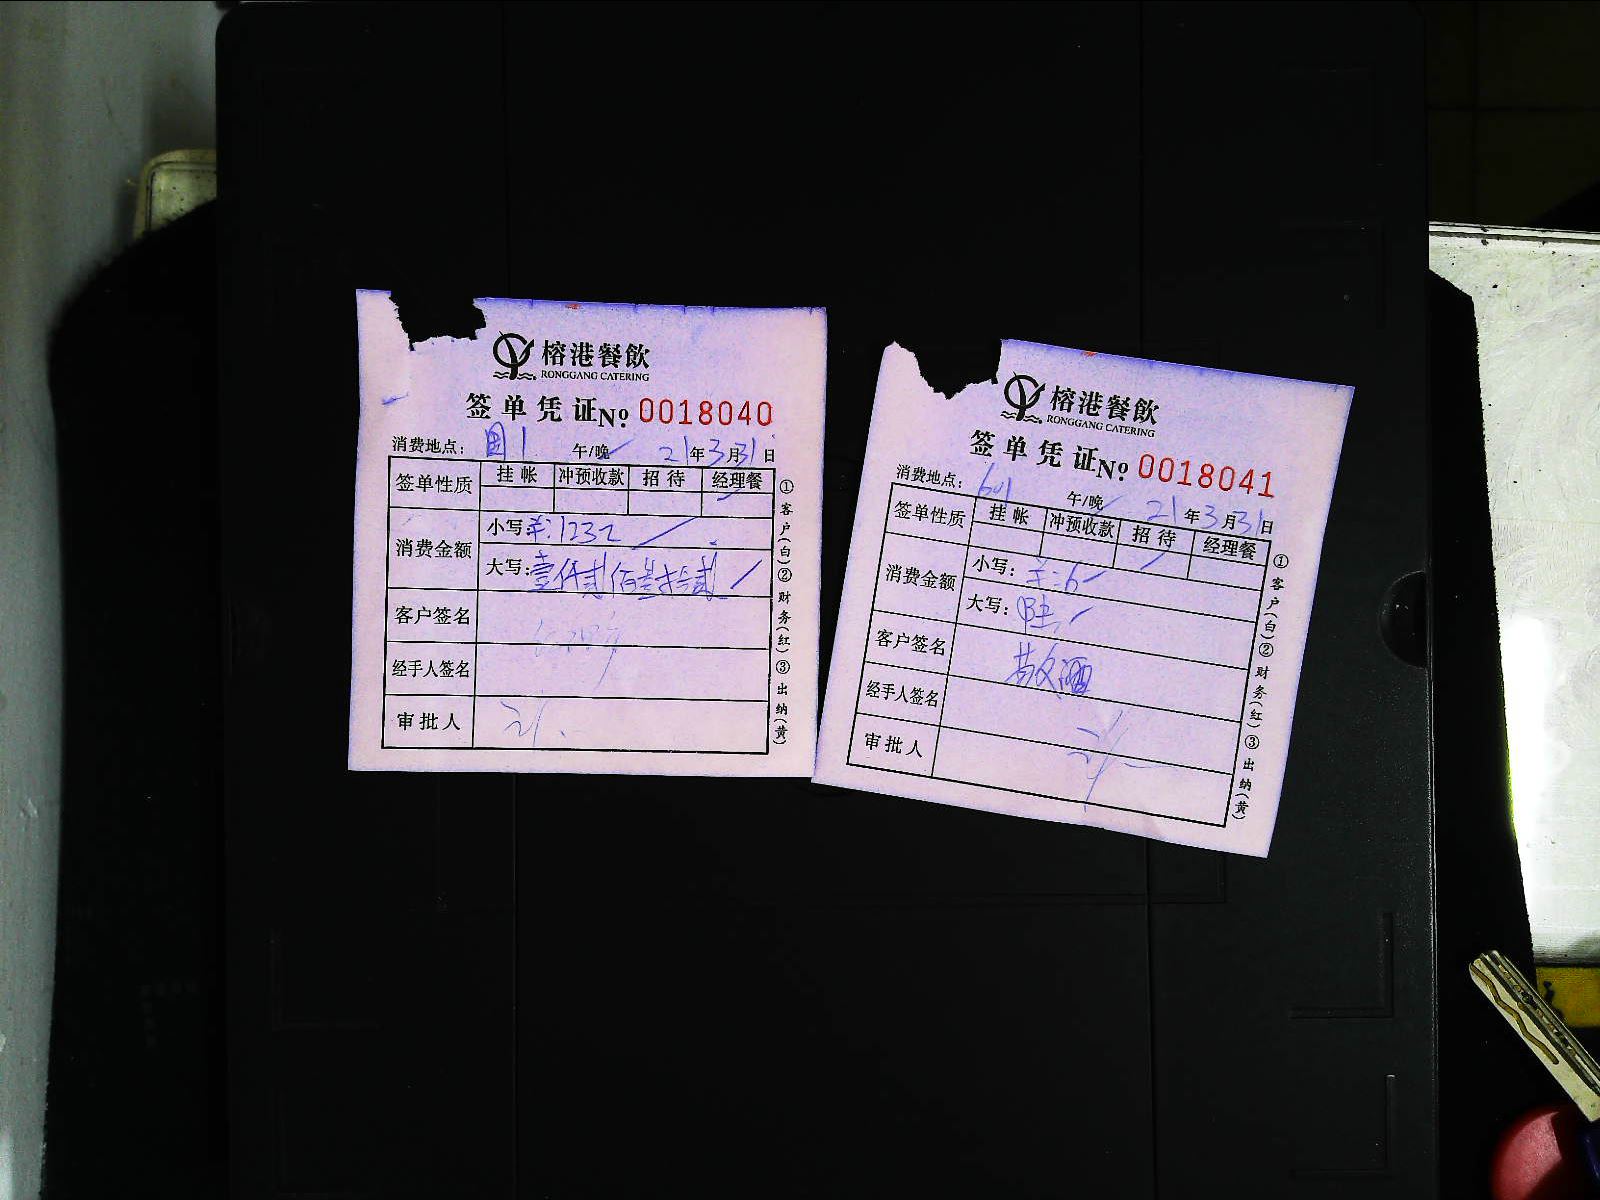 榕港餐飲
RONGGANG CATERING
签单凭证 No. 0018040
消费地点： 国1 午/晚 21年3月31日
签单性质 挂帐 冲预收款 招待 经理餐
消费金额 小写：￥:1232
大写：壹仟贰佰叁拾贰
客户签名
经手人签名
审批人
①客户(白)②财务(红)③出纳(黄)
榕港餐飲
RONGGANG CATERING
签单凭证 No. 0018041
消费地点： 601 午/晚 21年3月31日
签单性质 挂帐 冲预收款 招待 经理餐
消费金额 小写：￥:6
大写：陆
客户签名 敬酒
经手人签名
审批人
①客户(白)②财务(红)③出纳(黄)